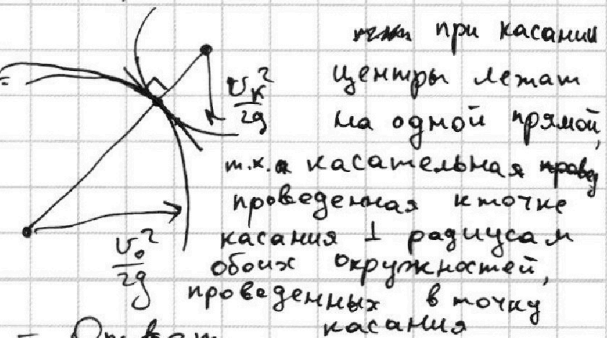 при касании
центры лежат
на одной прямой,
т.к. касательная
проведенная к точке
касания ⊥ радиусам
обоих окружностей,
проведенных в точку
касания
v_к²/2g
v₀²/2g